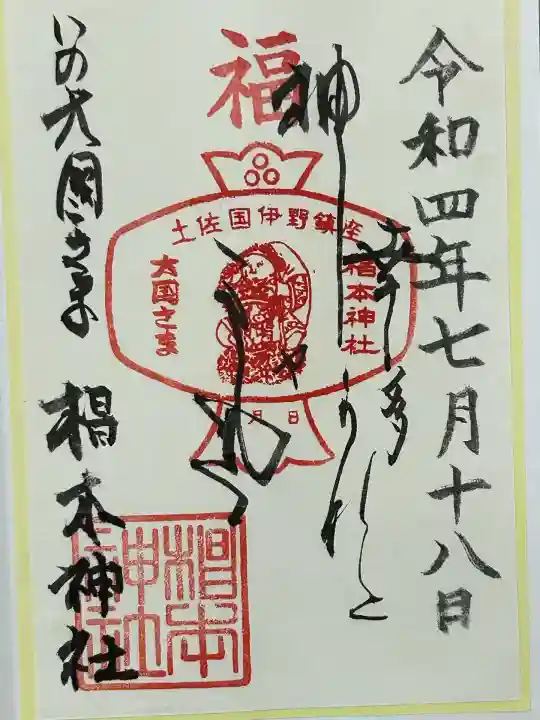 令和四年七月十八日
幸多かれと
神
福
土佐国伊野鎮座
椙本神社
大国さま
月日
いの大国さま
椙本神社
椙本
神社